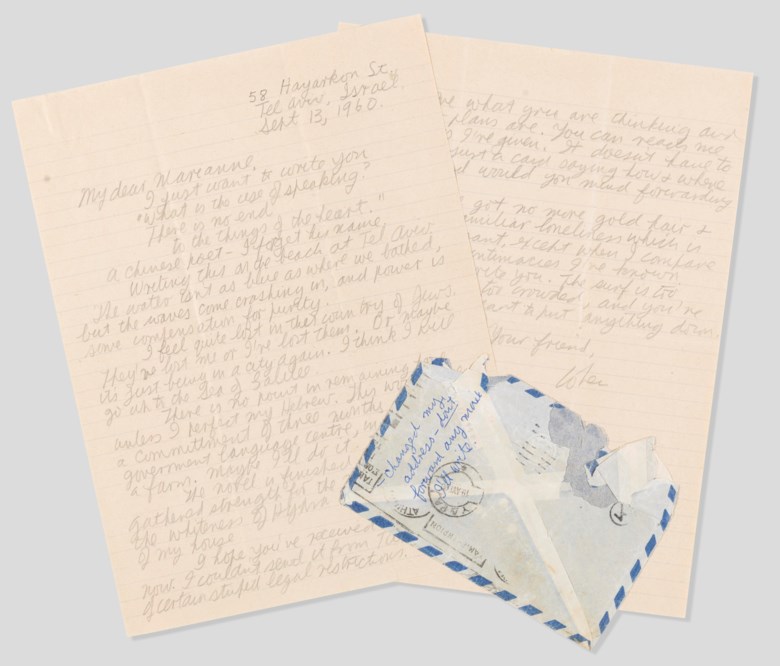 58 Hayarkon St.,
Tel Aviv, Israel.
Sept 13, 1960.
My dear Marianne,
I just want to write you
"What is the use of speaking?
There is no end
to the things of the heart."
A chinese poet – I forget his name.
Writing this on the beach at Tel Aviv.
The water isn't as blue as where we bathed,
but the waves come crashing in, and power is
some compensation for purity.
I feel quite lost in that country of Jews.
They've lost me or I've lost them. Or maybe
its just being in a city again. I think I will
go up to the Sea of Galilee.
There is no point in remaining
unless I perfect my Hebrew. This
a committment of three months
government language centre,
a farm. Maybe I'll do it,
The novel is finished
gathered strength for the
the whiteness of Hydra
of my house.
I hope you've received
now. I couldn't send it from
of certain stupid legal restrictions.
what you are thinking and
plans are. You can reach me
I've given. It doesn't have to
just a card saying how & where
would you mind forwarding
got no more gold hair &
familiar loneliness which is
except when I compare
intimacies I've known
write you. The surf is too
too crowded, and you're
want to put anything down.
Your friend,
Changed my
address – don't
forward any mail
I'll write.